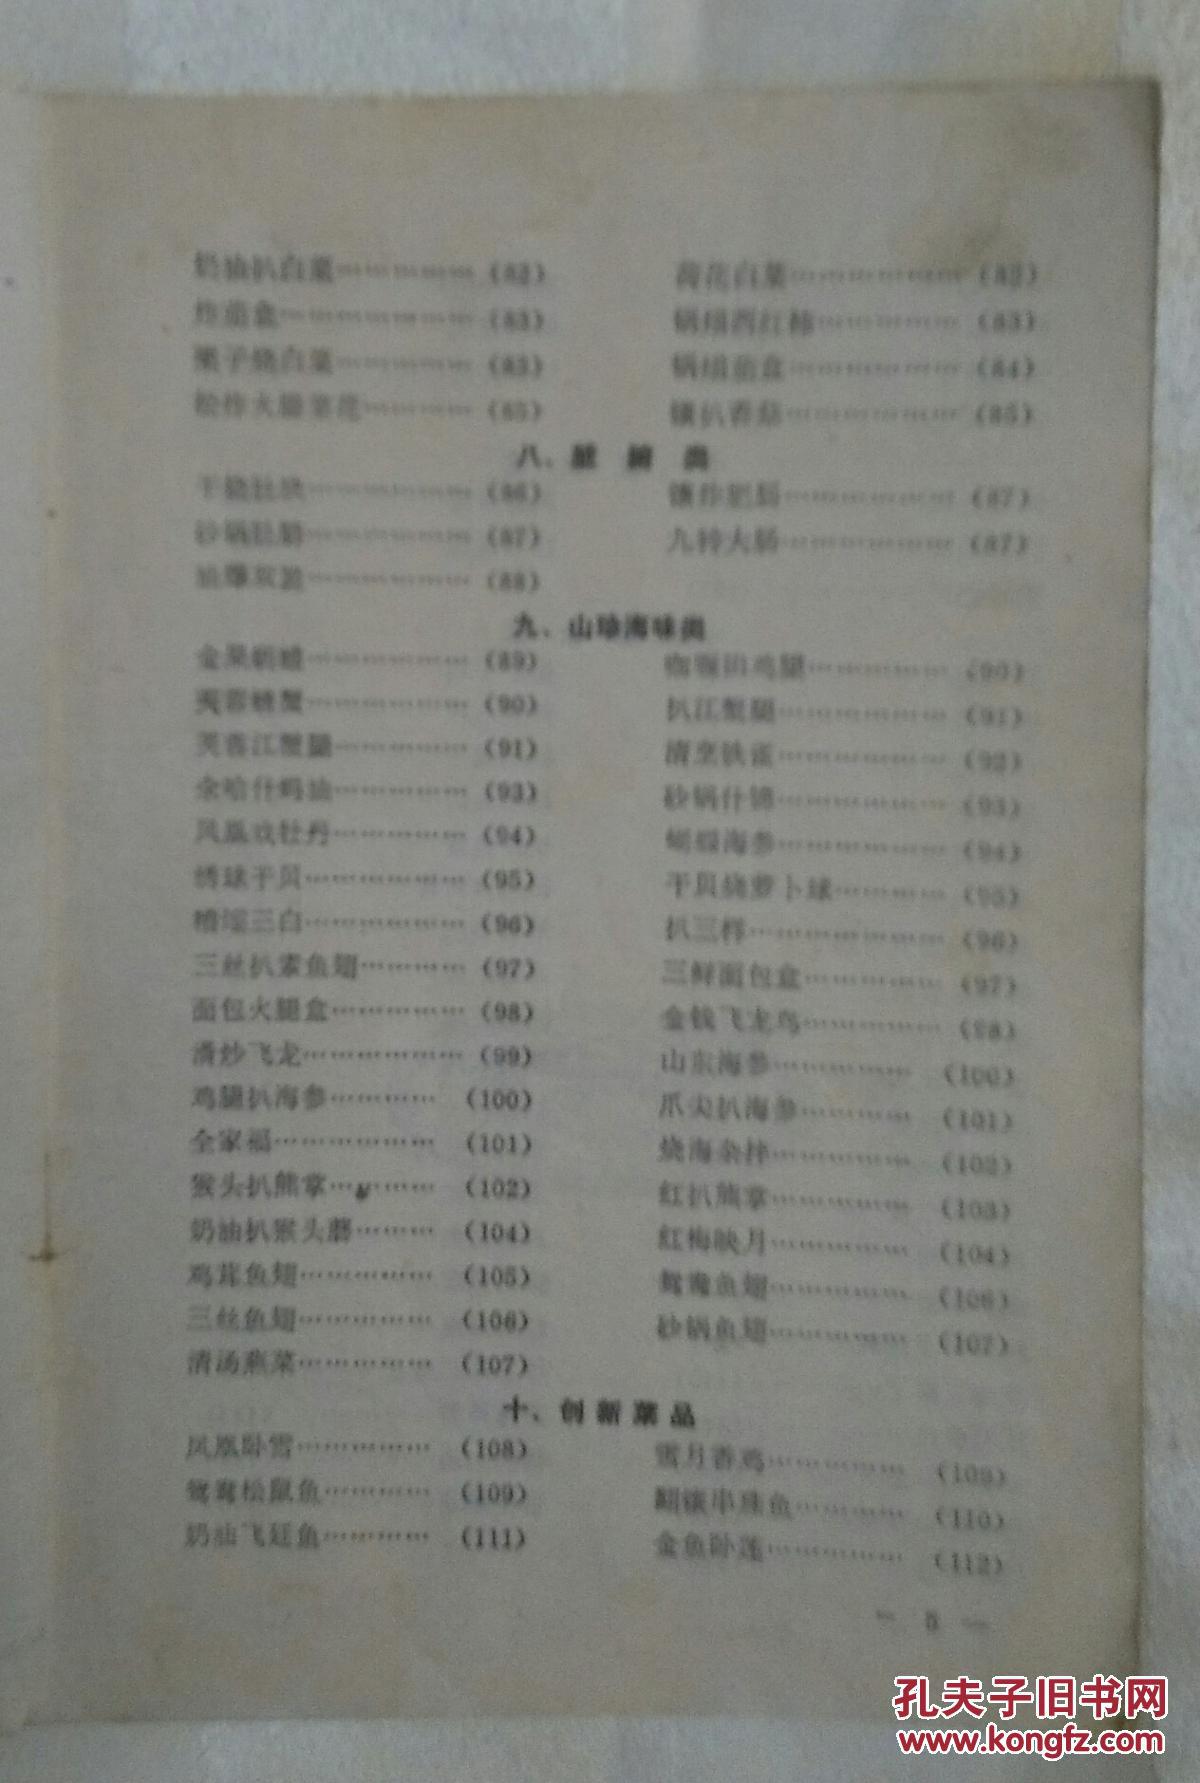 奶油扒白菜……………（82） 荷花白菜………………（82）
炸茄盒…………………（83） 锅塌西红柿……………（83）
栗子烧白菜……………（83） 锅塌茄盒………………（84）
松炸火腿菜花…………（85） 镶扒香菇………………（85）
八、脏腑类
干烧肚块………………（86） （87）
砂锅肚肺………………（87） 九转大肠………………（87）
油爆双脆………………（88）
九、山珍海味类
………………（89） 鸡腿……………（90）
芙蓉螃蟹………………（90） 扒江蟹腿………………（91）
芙蓉江蟹腿……………（91） 清烹铁雀………………（92）
氽哈什蚂油……………（93） 砂锅什锦………………（93）
凤凰戏牡丹……………（94） 蝴蝶海参………………（94）
绣球干贝………………（95） 干贝烧萝卜球…………（95）
糟溜三白………………（96） 扒三样…………………（96）
三丝扒素鱼翅…………（97） 三鲜面包盒……………（97）
面包火腿盒……………（98） 金钱飞龙鸟……………（98）
滑炒飞龙………………（99） 山东海参……………（100）
鸡腿扒海参…………（100） 爪尖扒海参…………（101）
全家福………………（101） 烧海杂拌……………（102）
猴头扒熊掌…………（102） 红扒熊掌……………（103）
奶油扒猴头蘑………（104） 红梅映月……………（104）
鸡茸鱼翅……………（105） 鸳鸯鱼翅……………（106）
三丝鱼翅……………（106） 砂锅鱼翅……………（107）
清汤燕菜……………（107）
十、创新菜品
凤凰卧雪……………（108） 雪月香鸡……………（109）
鸳鸯松鼠鱼…………（109） 串珠鱼…………（110）
奶油飞廷鱼…………（111） 金鱼卧莲……………（112）
— 5 —
孔夫子旧书网
www.kongfz.com